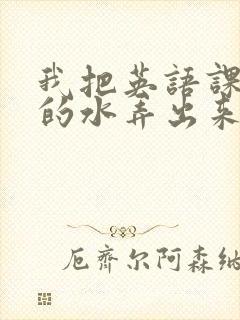 我把英語課
的水弄出來
厄齊尔阿森纳